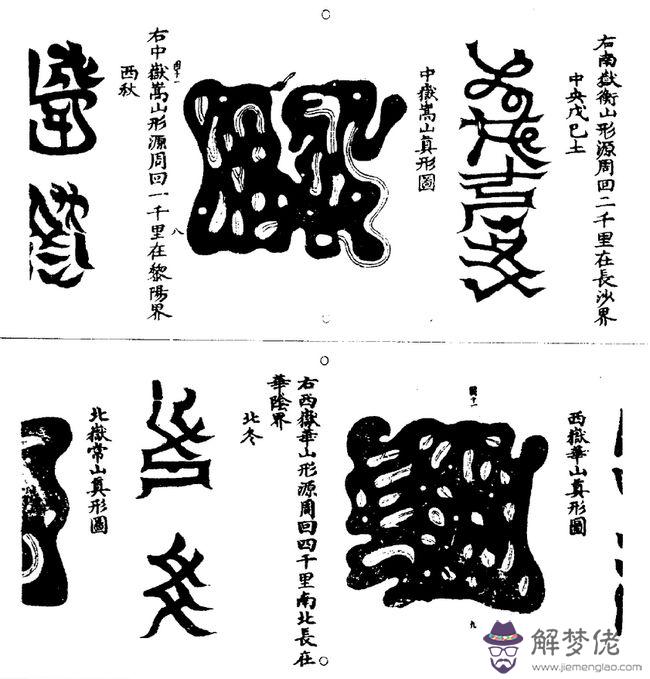 右南嶽衡山形源周回二千里在長沙界
中央戊巳土
中嶽嵩山真形圖
右中嶽嵩山形源周回一千里在黎陽界
西秋
八
西嶽華山真形圖
右西嶽華山形源周回四千里南北長在
華陰界
北冬
北嶽常山真形圖
九
解梦佬
www.jiemenglao.com